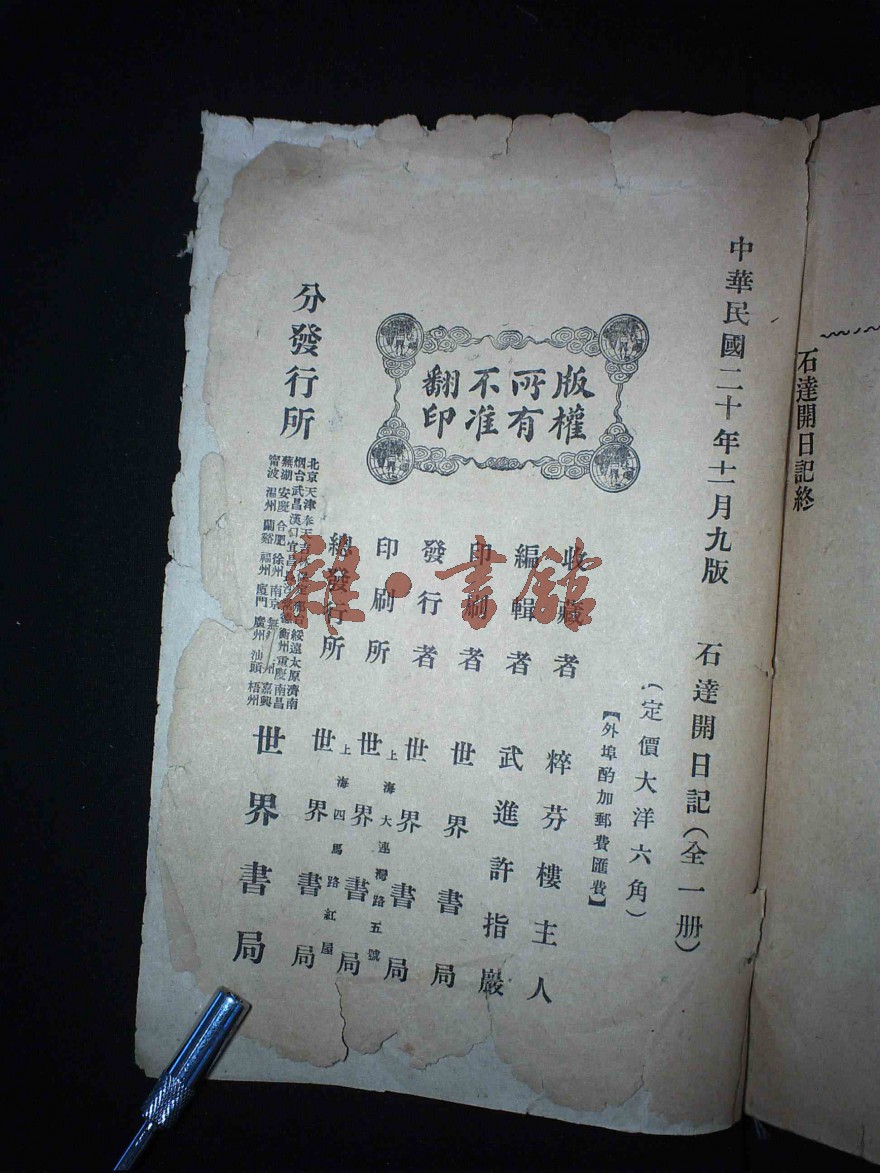 石達開日記終
中華民國二十年十二月九版
石達開日記（全一册）
（定價大洋六角）
【外埠酌加郵費匯費】
版權
所有
不准
翻印
收藏者 粹芬樓主人
編輯者 武進許指嚴
印刷者 世界書局
發行者 世界書局
印刷所 上海大連灣路五號 世界書局
總發行所 上海四馬路紅屋 世界書局
分發行所
北京 天津 奉天 綏遠 太原 濟南
烟台 武昌 漢口 宜昌 衡州 重慶 南昌
蕪湖 安慶 合肥 徐州 南京 嘉興
甯波 溫州 蘭谿 福州 廈門 廣州 汕頭 梧州
世界書局
雜·書館